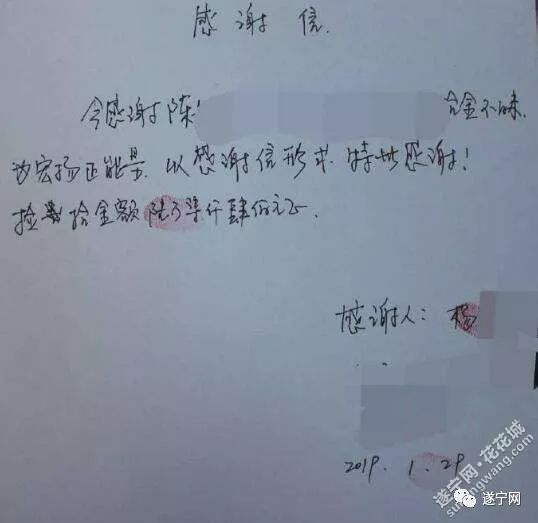 感谢信
今感谢陈 合金不昧.
为宏扬正能量.以感谢信形式.特此感谢!
捡拾金额陆万柒仟肆佰元正.
感谢人:杨
2019.1.29
遂宁网·花花城
suiningwang.com
遂宁网